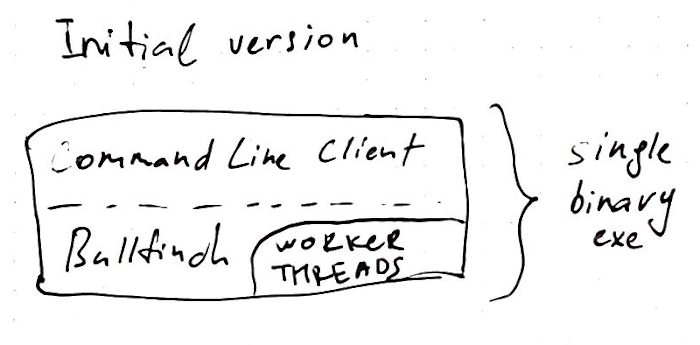 Initial version
Command Line Client
Bullfinch
WORKER
THREADS
single
binary
exe